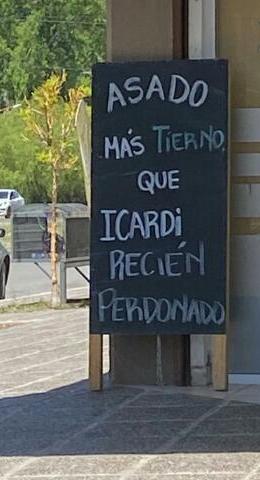 ASADO
MÁS TIERNO
QUE
ICARDi
RECIÉN
PERDONADO